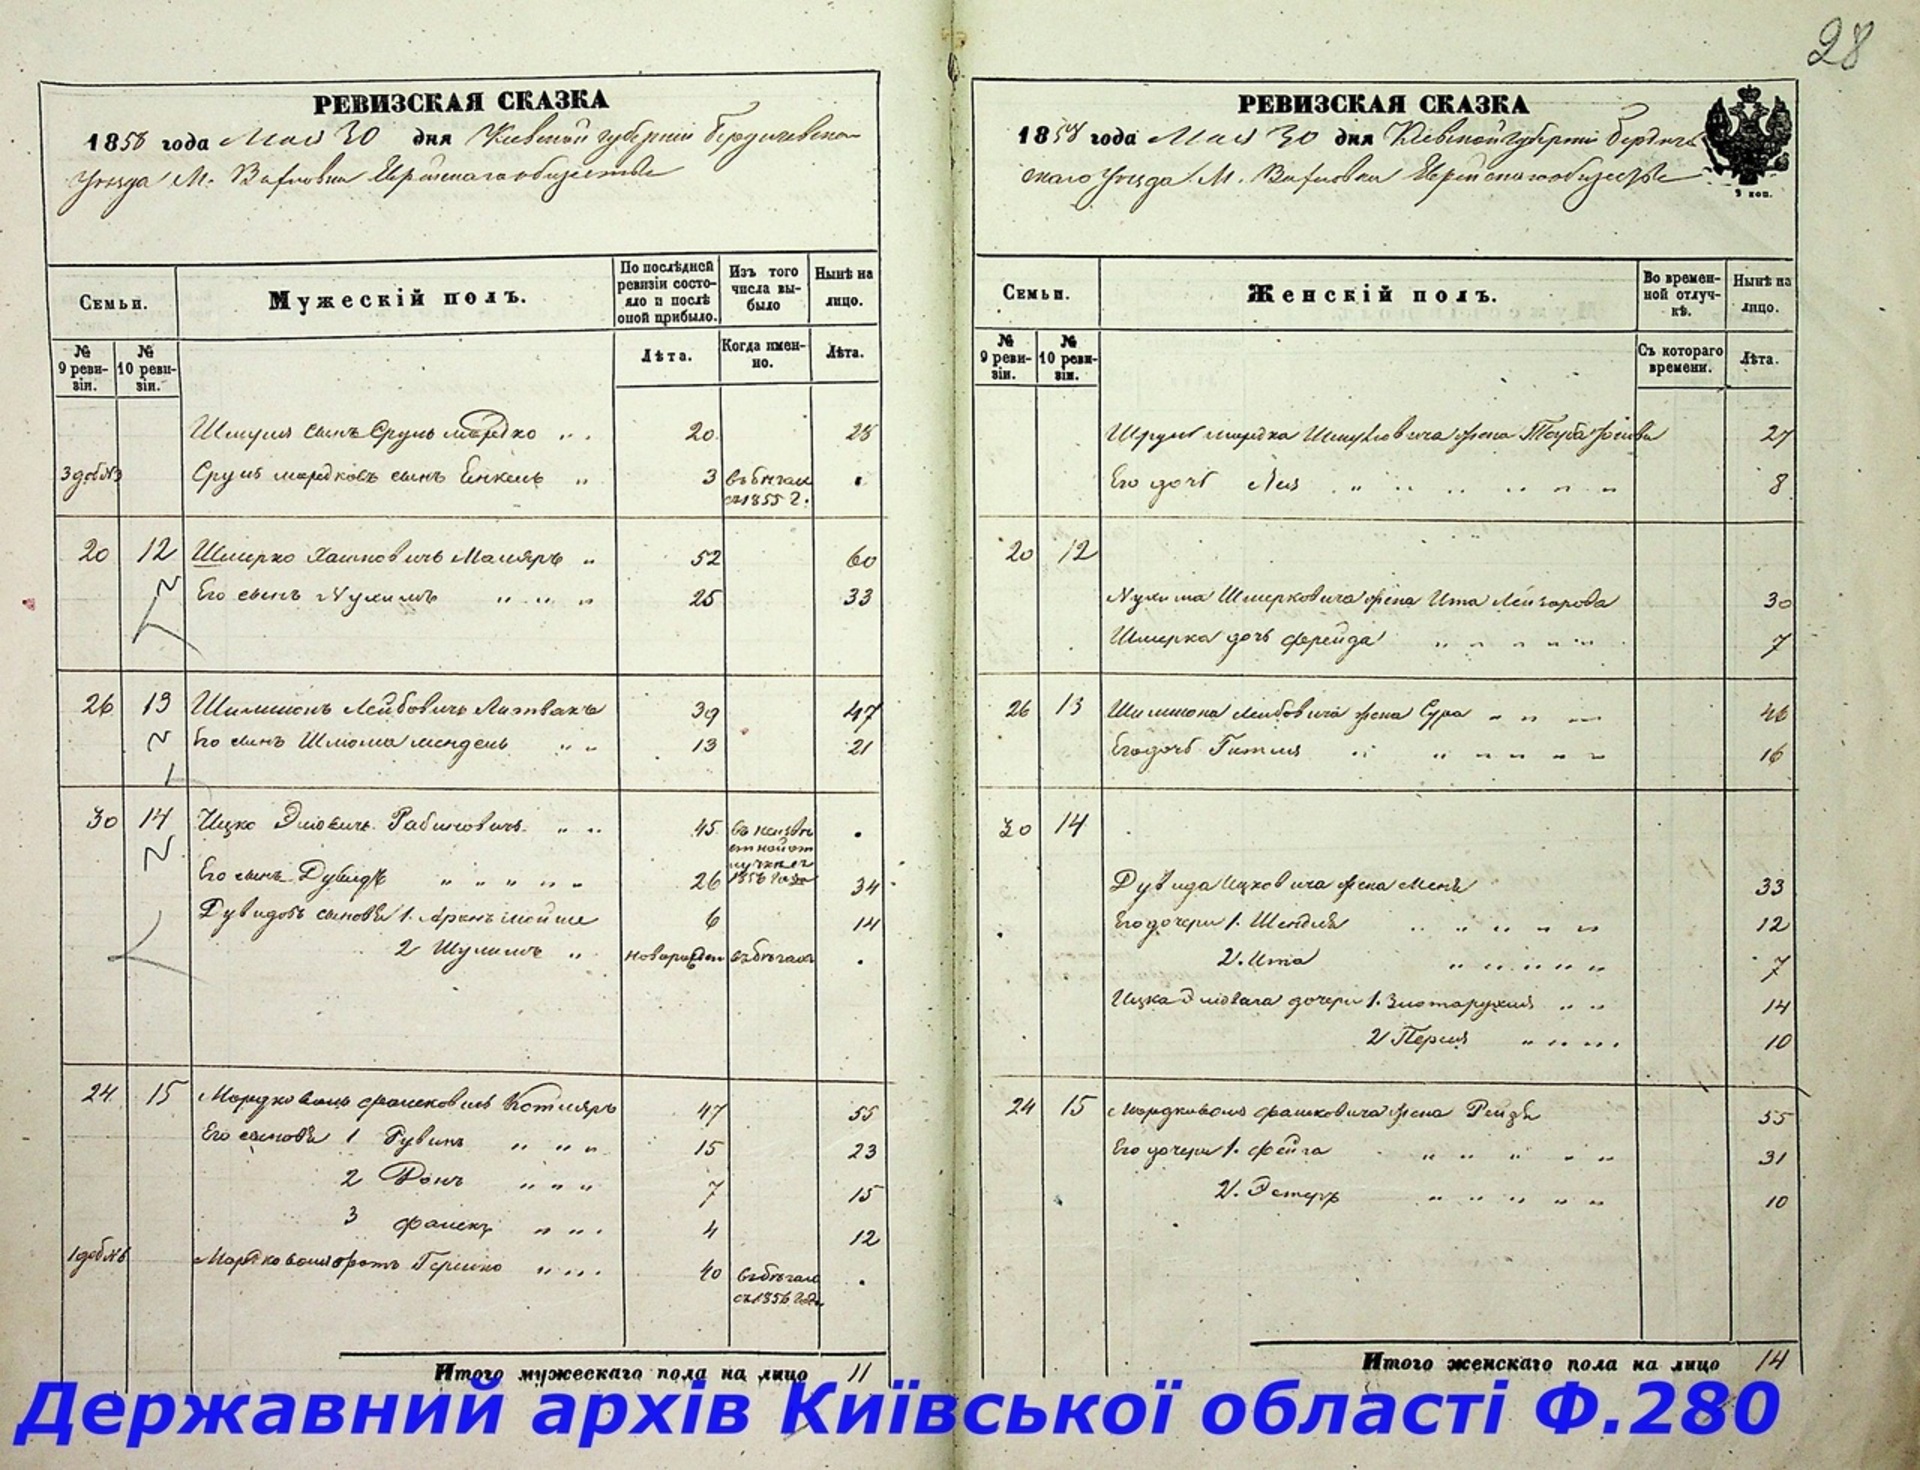 28
РЕВИЗСКАЯ СКАЗКА
1858 года Мая 30 дня Киевской губернiи Бердичевскаго
Уезда М. Вахновки Еврейскаго общества
Семьи.
Мужескiй полъ.
По послѣдней ревизiи состояло и послѣ оной прибыло.
Изъ того числа выбыло
Нынѣ на лицо.
№ 9 ревизiи.
№ 10 ревизiи.
Лѣта.
Когда именно.
Лѣта.
Шмуля сынъ Сруль мордко 20 28
Сруля мордковъ сынъ Янкель 3 въ бѣгахъ съ 1855 г.
20 12 Шмерко Хаимовичъ Маляръ 52 60
Его сынъ Нухимъ 25 33
26 13 Шимшонъ Лейбовичъ Литвакъ 39 47
Его сынъ Шлиома мендель 13 21
30 14 Ицко Элiовичъ Рабиновичъ 45 въ неизвѣстной отлучке с 1856 года
Его сынъ Дувидъ 26 34
Дувидовъ сыновья 1. Аронъ мойше 6 14
2 Шулимъ новорожден въ бѣгахъ
24 15 Мордко вольф Фалековичъ Котляръ 47 55
Его сыновья 1 Рувинъ 15 23
2 7 15
3 Фалекъ 4 12
Мордко вольф братъ Гершко 40 въ бѣгахъ съ 1856 года
Итого мужескаго пола на лицо 11
РЕВИЗСКАЯ СКАЗКА
1858 года Мая 30 дня Кiевской губернiи Бердичев
скаго Уезда М. Вахновки Еврейскаго общества
3 коп.
Семьи.
Женскiй полъ.
Во временной отлучкѣ.
Нынѣ на лицо.
№ 9 ревизiи.
№ 10 ревизiи.
Съ котораго времени.
Лѣта.
Шруля мордка Шмулiовича жена Тауба 27
Его дочь Лея 8
20 12
Нухима Шмерковича жена Ита Лейзарова 30
Шмерка дочь Фрейда 7
26 13 Шимшона Лейбовича жена Сура 46
Его дочь Гитля 16
30 14
Дувида Ицковича жена Меня 33
Его дочери 1. Шендля 12
2. Ита 7
Ицка Элiовича дочери 1. Злотарухля 14
2 Перля 10
24 15 Мордка вольф Фалковича жена Рейзя 55
Его дочери 1. Фейга 31
2. Эстеръ 10
Итого женскаго пола на лицо 14
Державний архів Київської області Ф.280